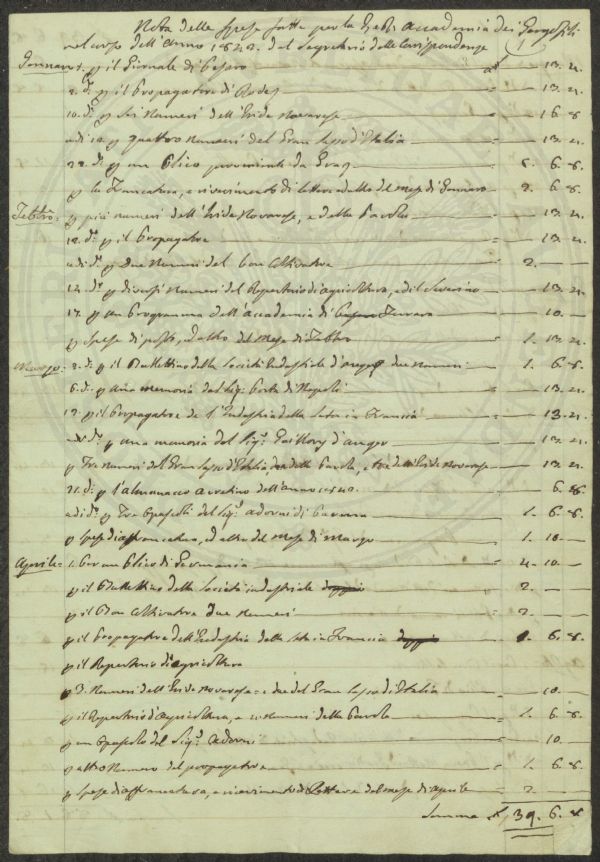 Nota delle Spese fatte per la Accademia dei Georgofili
nel corso dell'Anno 1842. dal Segretario delle Corrispondenze
Gennaro 1. p il Giornale di 13. 4.
2. d.° p il Propagatore di Rodez 13. 4.
10. d.° p Sei Numeri dell'Iride Novarese 1 6. 8.
adi p quattro Numeri del Gran Sasso d'Italia = 13. 4.
22. d.° p un Plico proveniente da 6. 6. 8.
p la francatura, e ricevimento di lettere del Mese di Gennaro 2. 6. 8.
Febbr.: p più numeri dell'Iride Novarese, e della Parola = 13. 4.
12. d.° p il Propagatore = 13. 4.
adi d.° p Due Numeri del bon Coltivatore = 2. —
12. d.° p diversi Numeri del Repertorio di agricoltura, e di 13. 4.
17. p un Programma dell'Accademia di Ferrara = 10. —
p Spese di posta, ed altro del Mese di Febbr. = 1. 13. 4.
Marzo: 2. d.° p il Bullettino della Società Industriale d'Angers due Numeri = 1. 6. 8.
6. d.° p una memoria del Sig. Corte di Napoli = 13. 4.
p il Propagatore de l'Industria della Seta in Francia = 13. 4.
adi d.° p una memoria del Sig.r d'Angers 13. 4.
p Tre Numeri del Gran Sasso d'Italia, della Parola, e dell'Iride Novarese = 13. 4.
21. d.° p l'almanacco aretino dell'anno 6. 8.
adi d.° p Tre Opuscoli del Sig.r Adorni di Parma = 1. 6. 8.
p spese di affrancatura, ed altro del Mese di Marzo = 1. 10. —
Aprile: 1. Per un Plico di Germania = 4. 10. —
p il Bullettino della Società industriale = 2. —
p il Bon Coltivatore due Numeri = 2. —
p il Propagatore dell'Industria della seta in Francia = 1. 6. 8.
p il Repertorio d'agricoltura
p 3. Numeri dell'Iride Novarese e due del Gran Sasso d'Italia = 10. —
p il Repertorio d'Agricoltura, e Numeri della Parola = 1. 6. 8.
p un Opuscolo del Sig.r Adorni = 10. —
p altro Numero del propagatore = 1. 6. 8.
p spese di affrancatura, e ricevimento di Lettere del mese di Aprile = 2. —
Somma £ 39. 6. 8